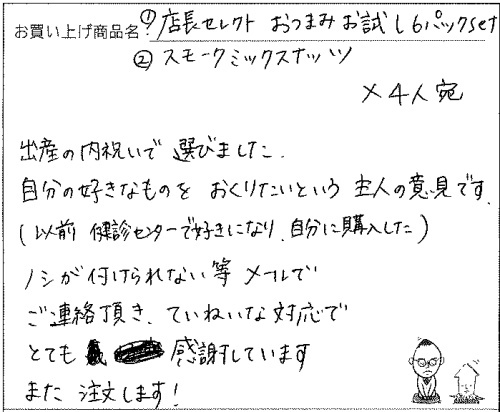 お買い上げ商品名：①店長セレクト おつまみお試し6パックset
②スモークミックスナッツ
×4人宛
出産の内祝いで選びました.
自分の好きなものを おくりたいという 主人の意見です.
(以前 健診センターで好きになり、自分に購入した)
ノシが付けられない等 メールで
ご連絡頂き、ていねいな対応で
とても 感謝しています
また 注文します!